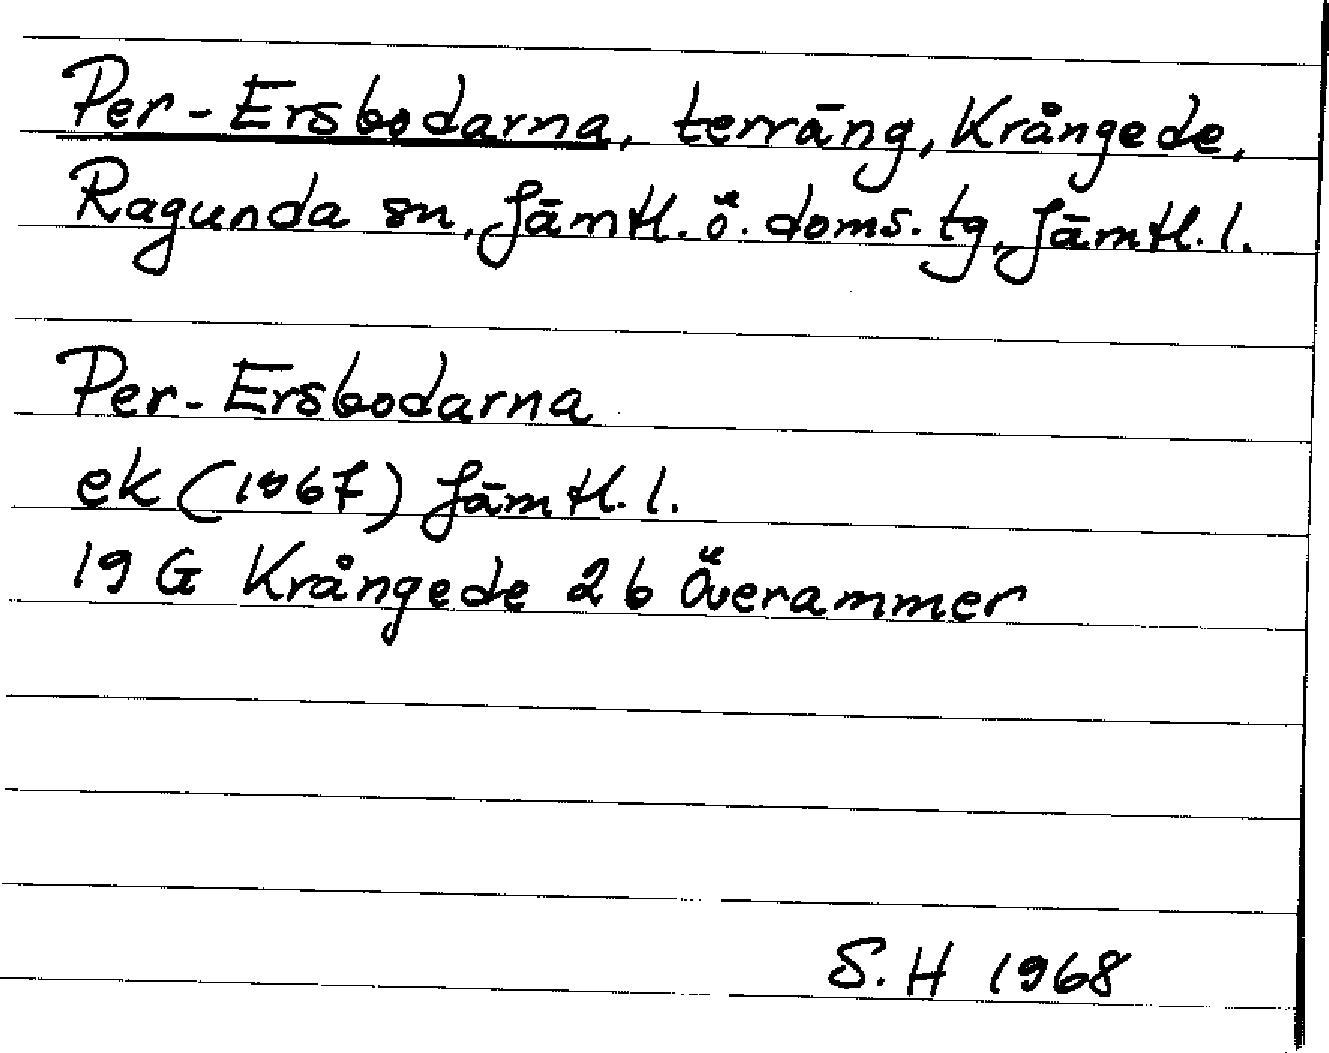 Per-Ersbodarna, terräng, Krångede,
Ragunda sn, Jämtl. ö. doms. tg, Jämtl. l.
Per-Ersbodarna
ek (1967) Jämtl. l.
19 G Krångede 2 b Överammer
S. H 1968